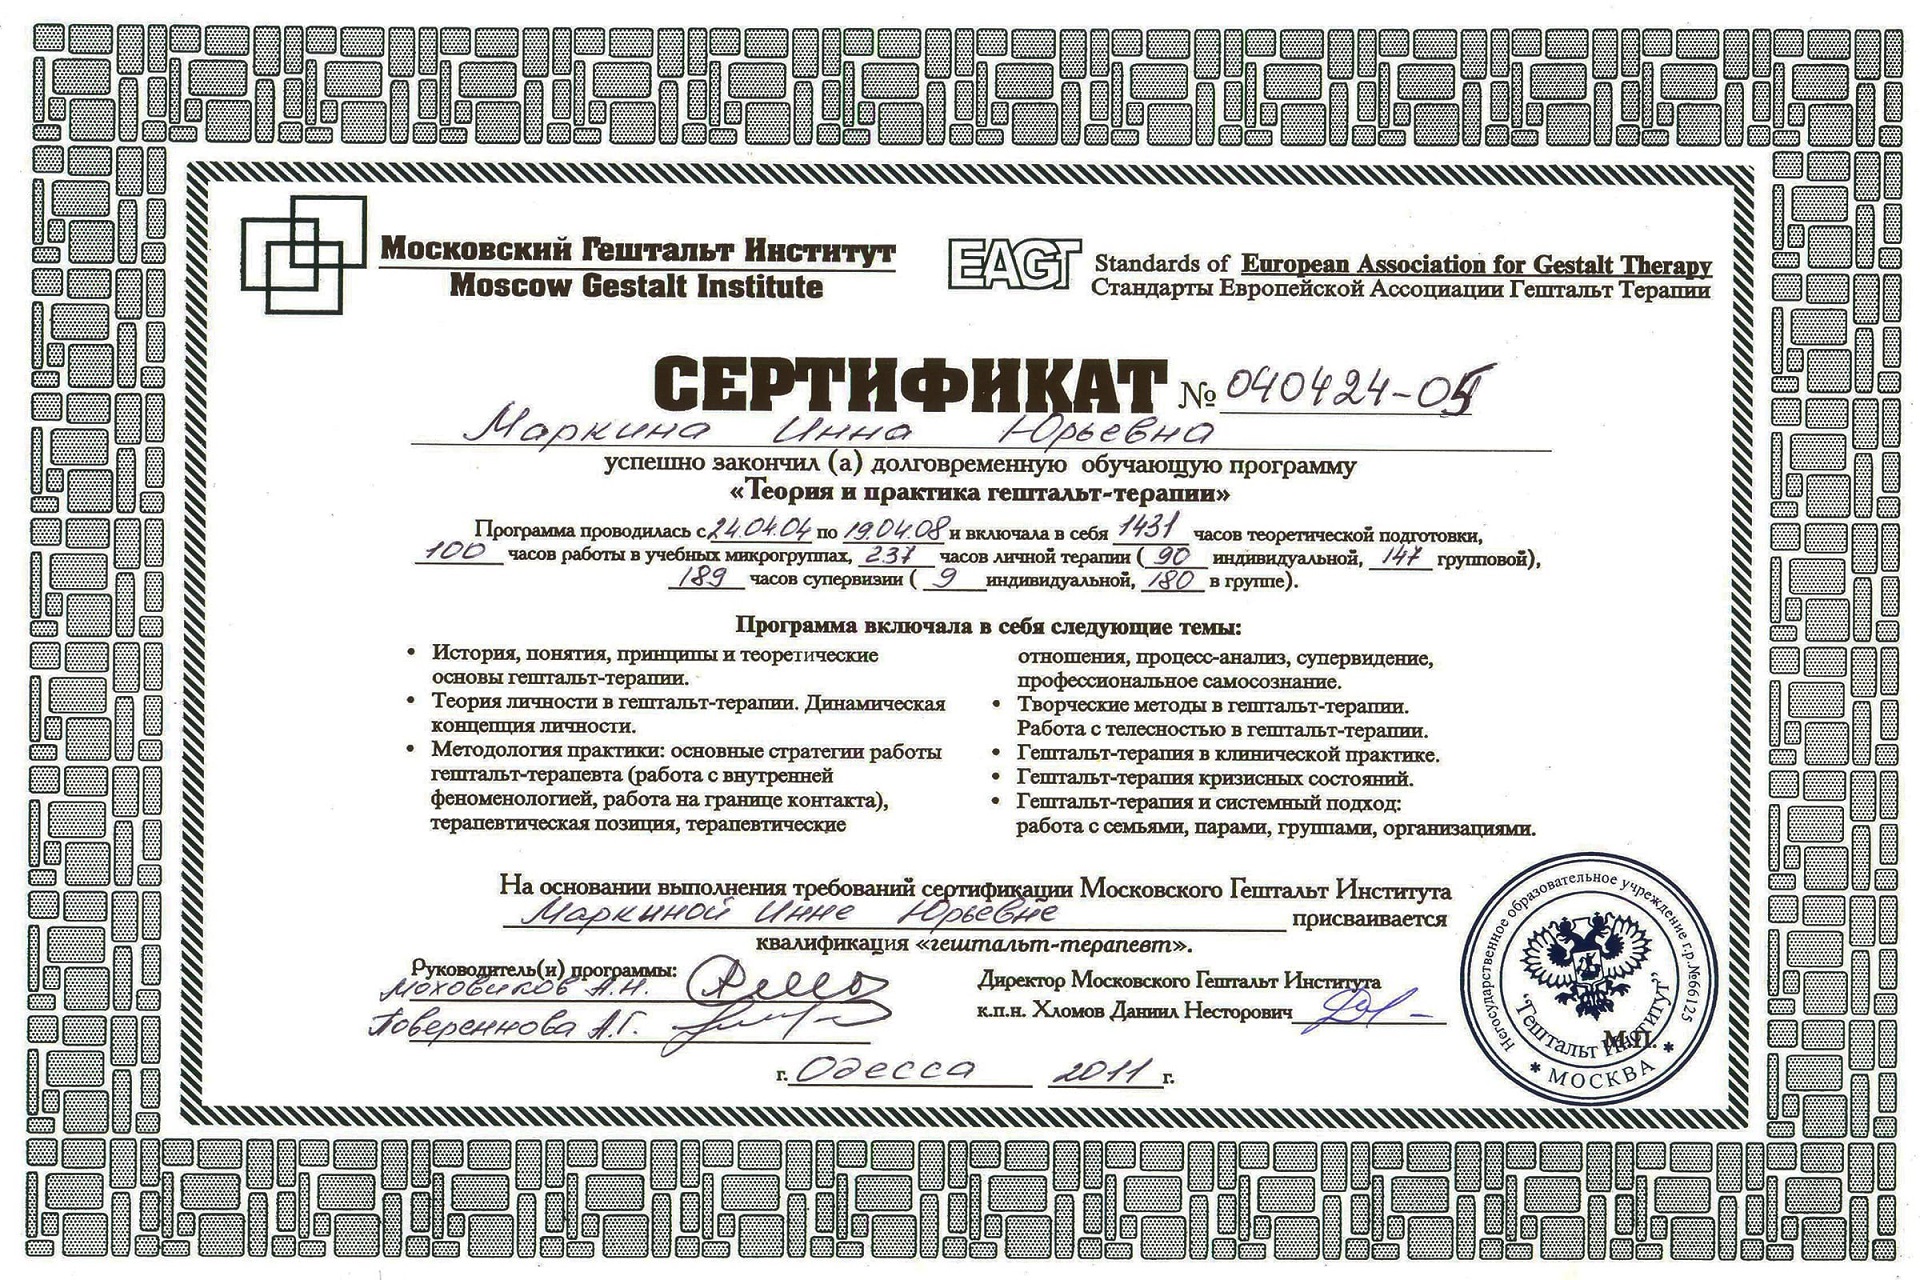 Московский Гештальт Институт
Moscow Gestalt Institute
EAGT
Standards of European Association for Gestalt Therapy
Стандарты Европейской Ассоциации Гештальт Терапии
СЕРТИФИКАТ № 040424-05
Маркина Инна Юрьевна
успешно закончил (а) долговременную обучающую программу
«Теория и практика гештальт-терапии»
Программа проводилась с 24.04.04 по 19.04.08 и включала в себя 1431 часов теоретической подготовки,
100 часов работы в учебных микрогруппах, 237 часов личной терапии ( 90 индивидуальной, 147 групповой),
189 часов супервизии ( 9 индивидуальной, 180 в группе).
Программа включала в себя следующие темы:
• История, понятия, принципы и теоретические
основы гештальт-терапии.
• Теория личности в гештальт-терапии. Динамическая
концепция личности.
• Методология практики: основные стратегии работы
гештальт-терапевта (работа с внутренней
феноменологией, работа на границе контакта),
терапевтическая позиция, терапевтические
отношения, процесс-анализ, супервидение,
профессиональное самосознание.
• Творческие методы в гештальт-терапии.
Работа с телесностью в гештальт-терапии.
• Гештальт-терапия в клинической практике.
• Гештальт-терапия кризисных состояний.
• Гештальт-терапия и системный подход:
работа с семьями, парами, группами, организациями.
На основании выполнения требований сертификации Московского Гештальт Института
Маркиной Инне Юрьевне присваивается
квалификация «гештальт-терапевт».
Руководитель(и) программы:
Моховиков А.Н.
Повереннова А.Г.
Директор Московского Гештальт Института
к.п.н. Хломов Даниил Несторович
г. Одесса 2011 г.
Негосударственное образовательное учреждение г.р.№66125
"Гештальт Институт"
М.П.
* МОСКВА *